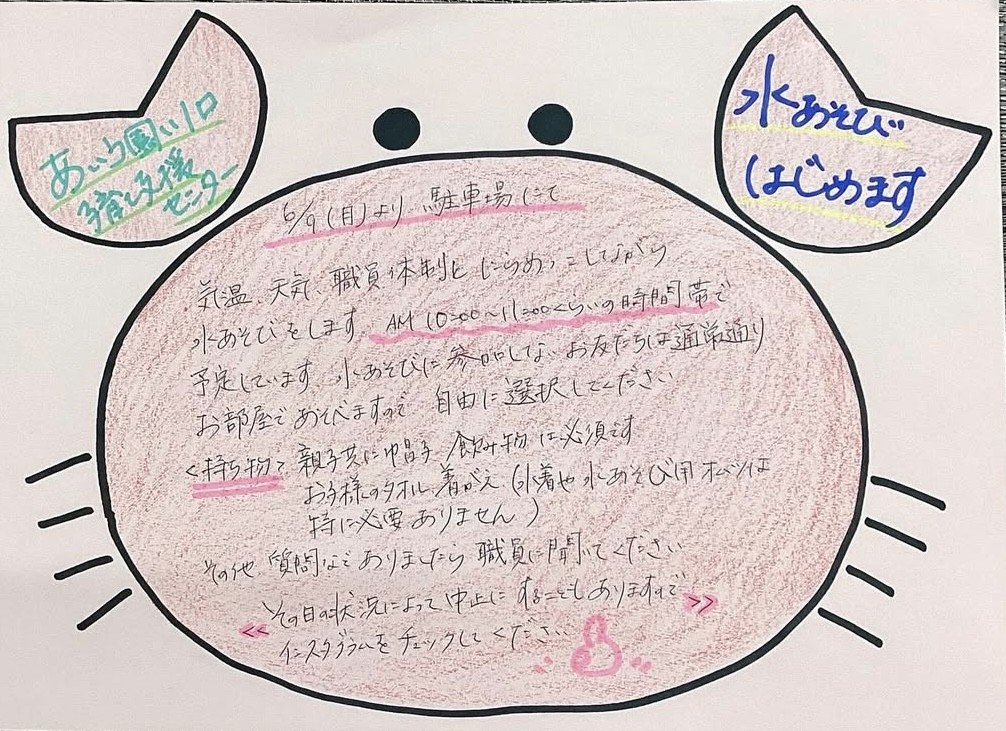 あいう園川口
子育て支援
センター
水あそび
はじめます
6/9(月)より 駐車場にて
気温、天気、職員体制とにらめっこしながら
水あそびをします。AM10:00〜11:00くらいの時間帯で
予定しています。水あそびに参加しないお友だちは通常通り
お部屋であそびますので 自由に選択してください
<持ち物> 親子共に帽子、飲み物は必須です
お子様のタオル、着がえ(水着や水あそび用オムツは
特に必要ありません)
その他、質問などありましたら職員に聞いてください
<<その日の状況によって中止にすることもありますので>>
インスタグラムをチェックしてください